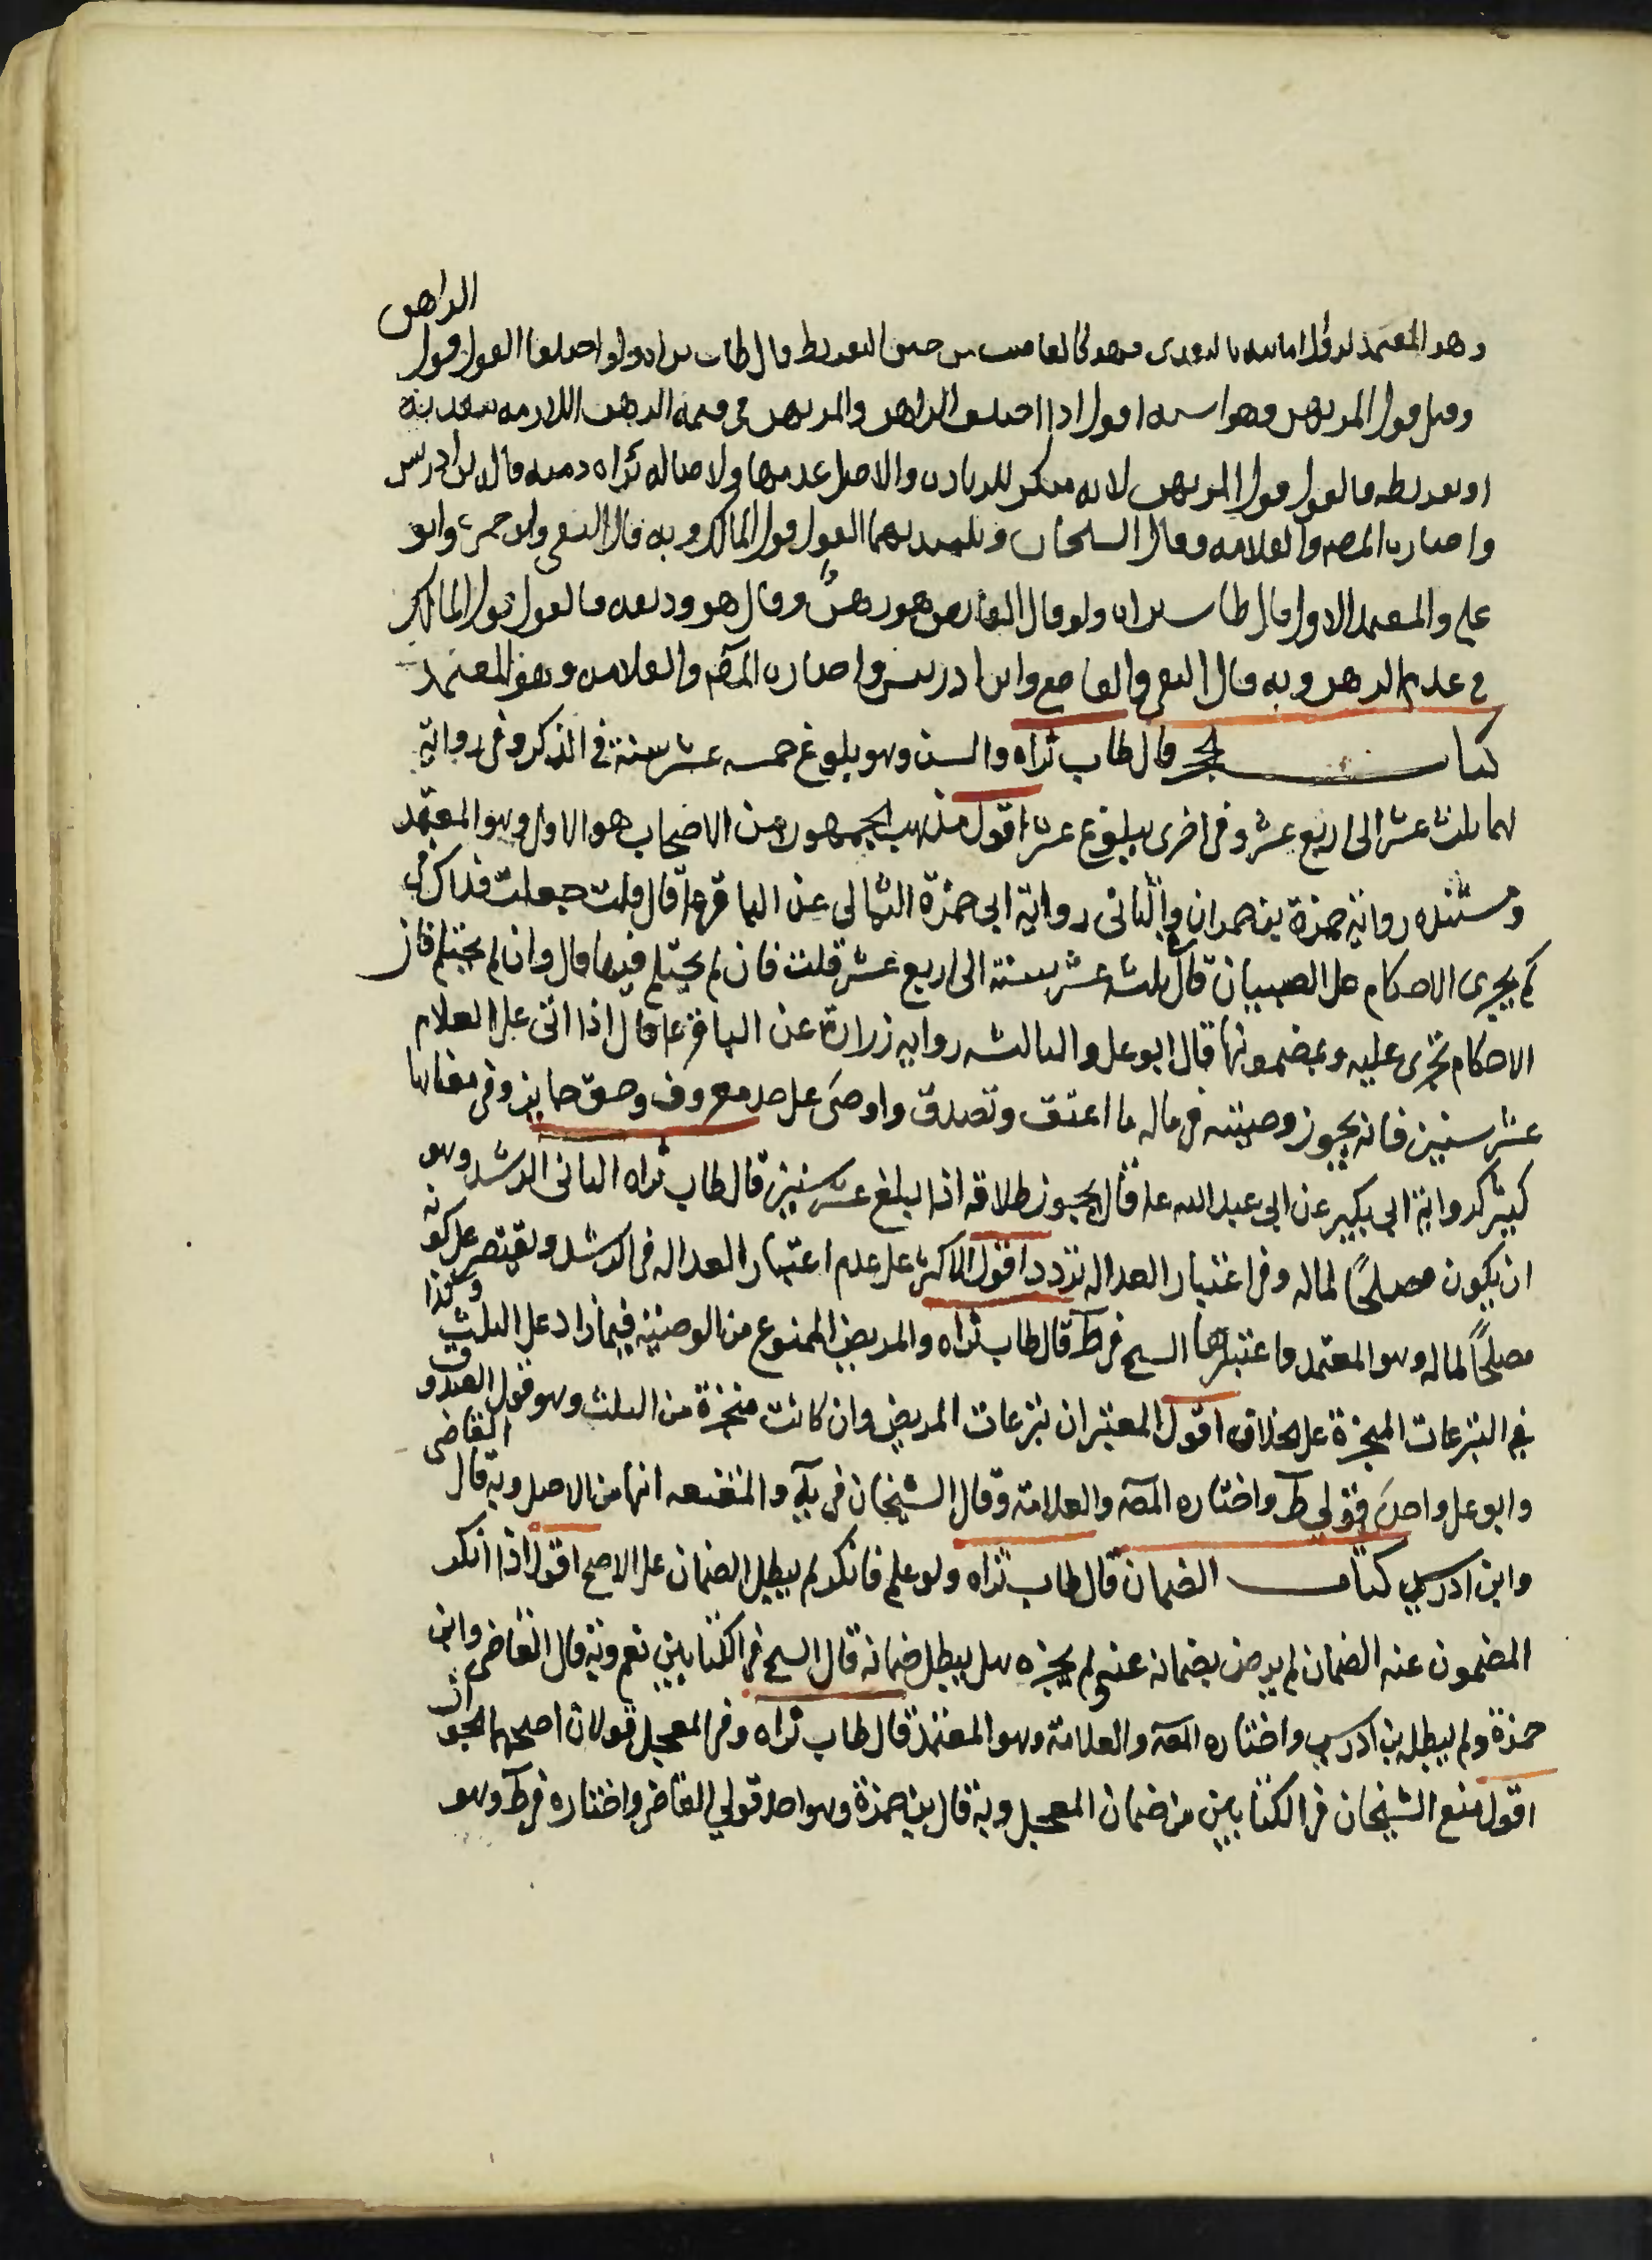 الراهن
وهو المعتمد لزوال امانته بالتعدى فهو كالغاصب من حين التفريط قال طاب ثراه ولو اختلفا القول قول
وقيل قول المرتهن وهو اشبه اقول اذا اختلف الراهن والمرتهن فى قيمة الرهن اللازمة بتعديه
او تفريطه فالقول قول المرتهن لانه منكر للزيادة والاصل عدمها ولاصالة براه ذمته قاله ابن ادريس
واختاره المصه والعلامه وقال الشيخان وتلميذيهما القول قول المالك وبه قال التقى وابن حمزة وابو
على والمعتمد الاول قال طاب ثراه ولو قال القابض هو رهنٌ وقال هو وديعه فالقول قول المالك
فى عدم الرهن وبه قال التقى والقاضى وابن ادريس واختاره المصه والعلامه وهو المعتمد
كتاب الحجر قال طاب ثراه والسن وهو بلوغ خمسه عشر سنة فى الذكر وفى رواية
لها ثلث عشر الى اربع عشر وفى اخرى ببلوغ عشرا اقول مذهب الجمهور من الاصحاب هو الاول وهو المعتمد
ومستنده رواية حمزة بن حمران والثانى رواية ابى حمزة الثمالى عن الباقر ع قال قلت جعلت فداك فى
كم يجرى الاحكام على الصبيان قال ثلثه عشر سنة الى اربع عشر قلت فان لم يحتلم فيها قال وان لم يحتلم فان
الاحكام تجرى عليه وبمضمونها قال ابو على والثالثه روايه زرارة عن الباقر ع قال اذا اتى على الغلام
عشر سنين فانه يجوز وصيته فى ماله ما اعتق وتصدق واوصى على حد معروف وحق جايز وفى معناها
كثير كرواية ابى بكير عن ابى عبد الله ع قال يجوز طلاقه اذا بلغ عشر سنين قال طاب ثراه الثانى الرشد وهو
ان يكون مصلحًا لماله وفى اعتبار العداله تردد اقول الاكثر على عدم اعتبار العداله فى الرشد ويقتصر على كونه
مصلحًا لماله وهو المعتمد واعتبرها الشيخ فى ط قال طاب ثراه والمريض الممنوع من الوصية فيما زاد على الثلث وكذا
فى التبرعات المنجزة على الخلاف اقول المعتبر ان تبرعات المريض وان كانت منجزة من الثلث وهو قول الصدوق
وابو على واحد قولى ط واختاره المصه والعلامة وقال الشيخان فى يه والمقنعه انها من الاصل وبه قال القاضى
وابن ادريس كتاب الضمان قال طاب ثراه ولو علم فانكر لم يبطل الضمان على الاصح اقول اذا انكر
المضمون عنه الضمان لم يرض بضمانه عنه ولم يجزه هل يبطل ضمانه قال الشيخ فى الكتابين نعم وبه قال القاضى وابن
حمزة ولم يبطله بن ادريس واختاره المصه والعلامة وهو المعتمد قال طاب ثراه وفى المعجل قولان اصحهما الجواز
اقول منع الشيخان فى الكتابين من ضمان المعجل وبه قال بن حمزة وهو احد قولى القاضى واختاره فى ط وهو